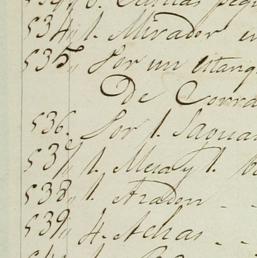 534, 1. Mirador en
535, Por un estanq
De Conra
536. Por 1. Jaguar
537, 1. Mesa y 1.
538, 1. Arador - -
539, 4. Achas - -